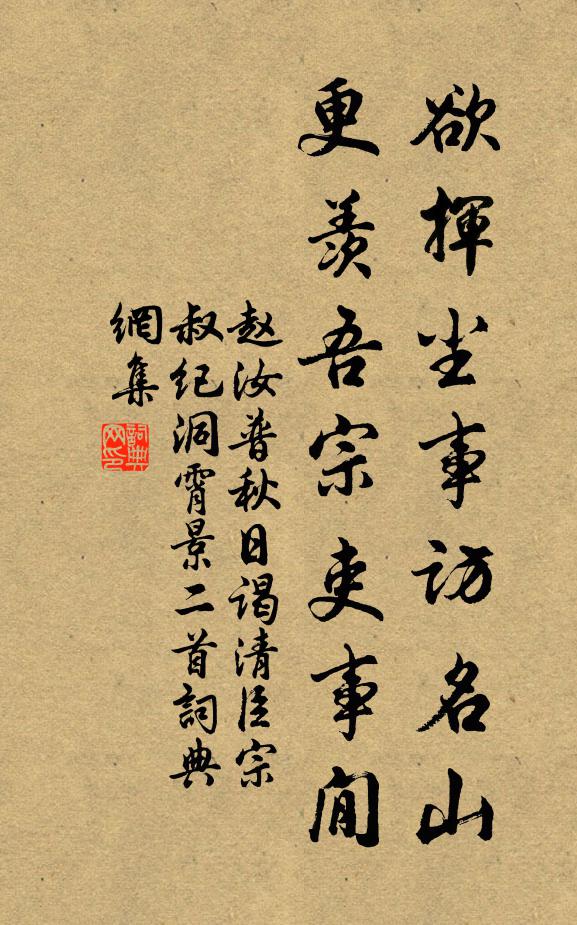 欲揮尘事訪名山
更羨吾宗吏事閒
赵汝普秋日谒清臣宗
叔纪洞霄景二首詞典
網集
詞典
网印